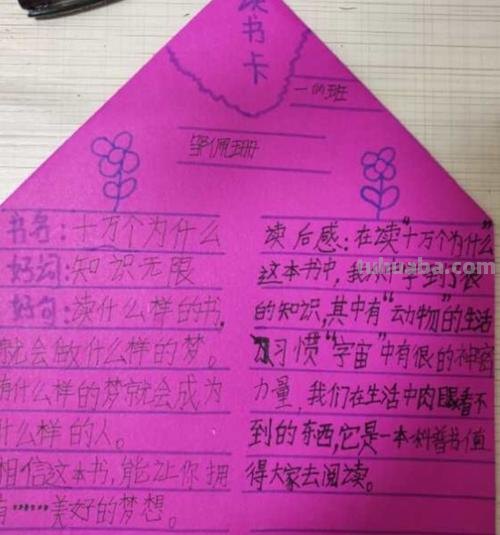 读书卡
一(4)班
佩珊
书名:十万个为什么
好词:知识无限
好句:读什么样的书,
就会做什么样的梦。
有什么样的梦就会成为
什么样的人。
相信这本书,能让你拥
有……美好的梦想。
读后感:在读“十万个为什么”
这本书中,我 学到了很
的知识,其中有“动物”的生活
习惯“宇宙”中有很的神密
力量,我们在生活中肉眼看不
到的东西,它是一本科普书值
得大家去阅读。
tuhuaba.com